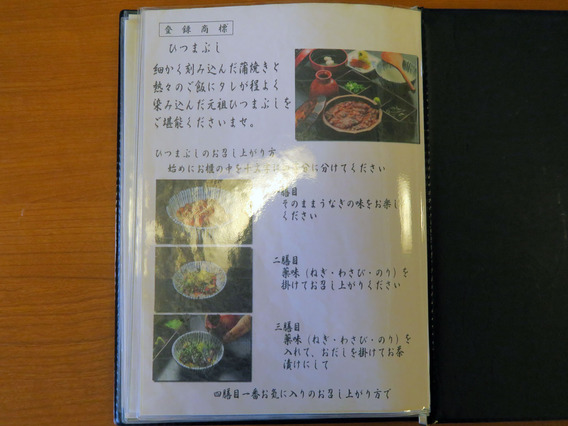 登録商標
ひつまぶし
細かく刻み込んだ蒲焼きと
熱々のご飯にタレが程よく
染み込んだ元祖ひつまぶしを
ご堪能くださいませ。
ひつまぶしのお召し上がり方
始めにお櫃の中を十文字に 分に分けてください
膳目
そのままうなぎの味をお楽し
ください
二膳目
薬味(ねぎ・わさび・のり)を
掛けてお召し上がりください
三膳目
薬味(ねぎ・わさび・のり)を
入れて、おだしを掛けてお茶
漬けにして
四膳目一番お気に入りのお召し上がり方で